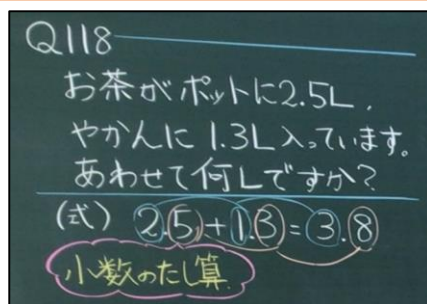 Q118
お茶がポットに2.5L,
やかんに1.3L入っています。
あわせて何Lですか?
(式) 2.5+1.3=3.8
小数のたし算